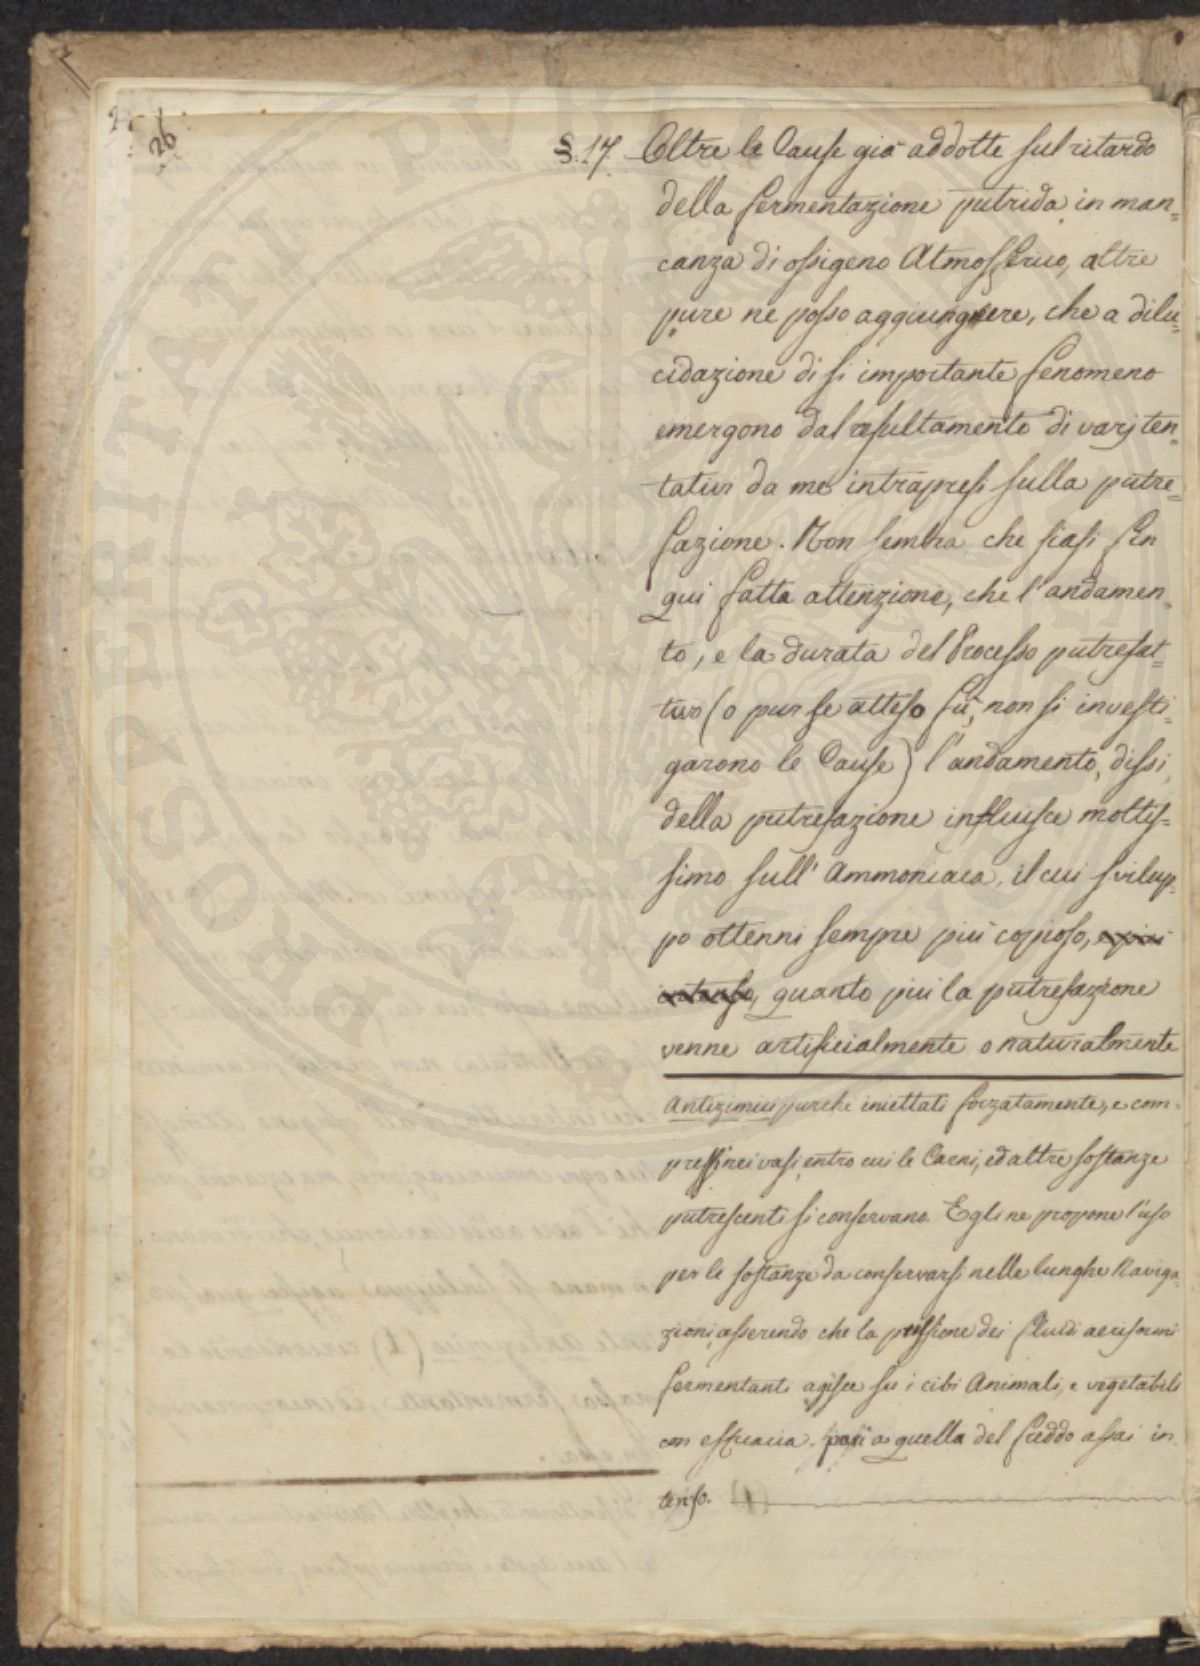 26
§. 17 Oltre le Cause già addotte sul ritardo
della fermentazione putrida in man=
canza di ossigeno Atmosferico, altre
pure ne posso aggiungnere, che a dilu=
cidazione di si importante fenomeno
emergono dal resultamento di varj ten=
tativi da me intrapresi sulla putre=
fazione. Non sembra che siasi fin
qui fatta attenzione, che l'andamen=
to, e la durata del Processo putrefat=
tivo (o pur se atteso fù, non si investi=
garono le Cause) l'andamento, dissi,
della putrefazione influisce moltis=
simo sull' Ammoniaca, il cui svilup=
po ottenni sempre più copioso, e più
intenso, quanto più la putrefazione
venne artificialmente o naturalmente
Antizimici purchè iniettati forzatamente, e com=
pressi nei vasi, entro cui le Carni, ed altre sostanze
putrescenti si conservano. Egli ne propone l'uso
per le sostanze da conservarsi nelle lunghe Naviga=
zioni, asserendo che la pressione dei fluidi aeriformi
fermentanti agisce su i cibi Animali, e vegetabili
con efficacia pari a quella del freddo assai in
tenso.
PROSPERITATI PVBLI